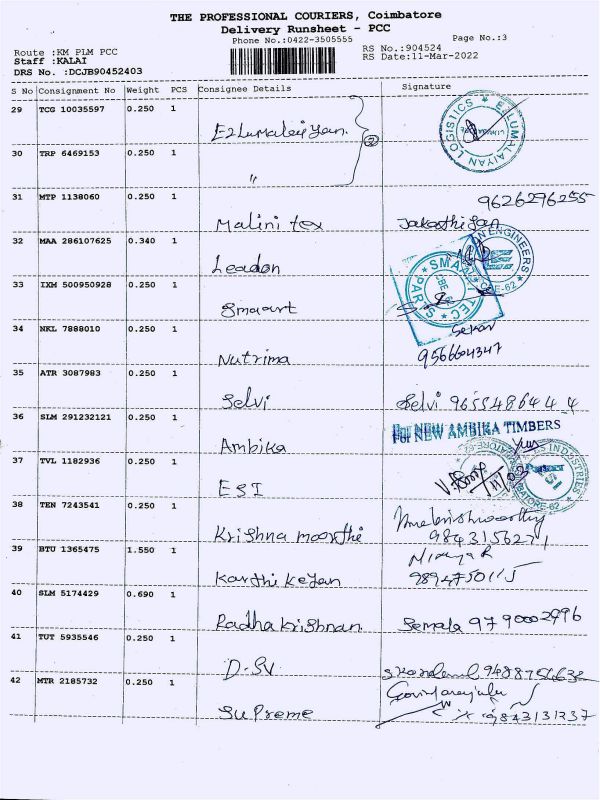 THE PROFESSIONAL COURIERS, Coimbatore
Delivery Runsheet - PCC
Phone No.:0422-3505555
Page No.:3
Route :KM PLM PCC
RS No.:904524
Staff :KALAI
RS Date:11-Mar-2022
DRS No. :DCJB90452403
S No Consignment No Weight PCS Consignee Details Signature
29 TCG 10035597 0.250 1
Ezhumalaiyan.
LOGISTICS * EZLUMALAIYAN
30 TRP 6469153 0.250 1
"
31 MTP 1138060 0.250 1
9626296255
Malini tex
32 MAA 286107625 0.340 1
Leadon
ENGINEERS
33 IXM 500950928 0.250 1
Smaart
SMAART TEC
CBE
34 NKL 7888010 0.250 1
Sekar
Nutrima 9566604347
35 ATR 3087983 0.250 1
Selvi Selvi 9655486444
36 SLM 291232121 0.250 1
For NEW AMBIKA TIMBERS
Ambika
37 TVL 1182936 0.250 1
INDUSTRIES
ESI
38 TEN 7243541 0.250 1
Krishna moorthi 9843156271
39 BTU 1365475 1.550 1
Karthikeyan 9894750115
40 SLM 5174429 0.690 1
Radhakrishnan Semala 9790002996
41 TUT 5935546 0.250 1
D.SV 9488754632
42 MTR 2185732 0.250 1
Govindarajulu
Supreme 9843131237